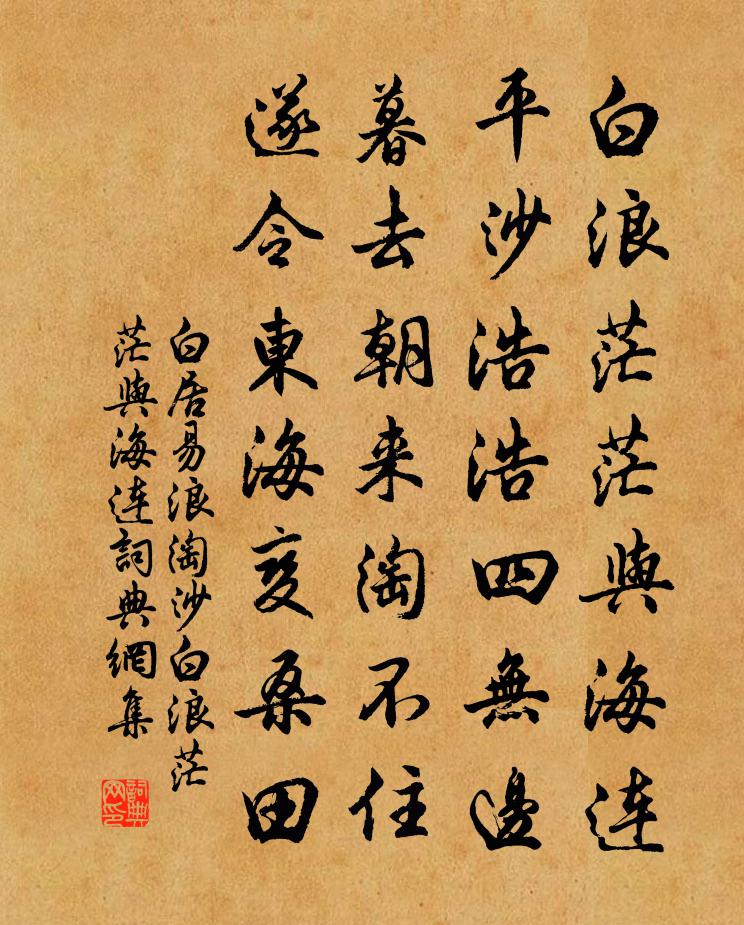 白浪茫茫與海連
平沙浩浩四無邊
暮去朝来淘不住
遂令東海变桑田
白居易浪淘沙白浪茫
茫與海連詞典網集
詞典网印